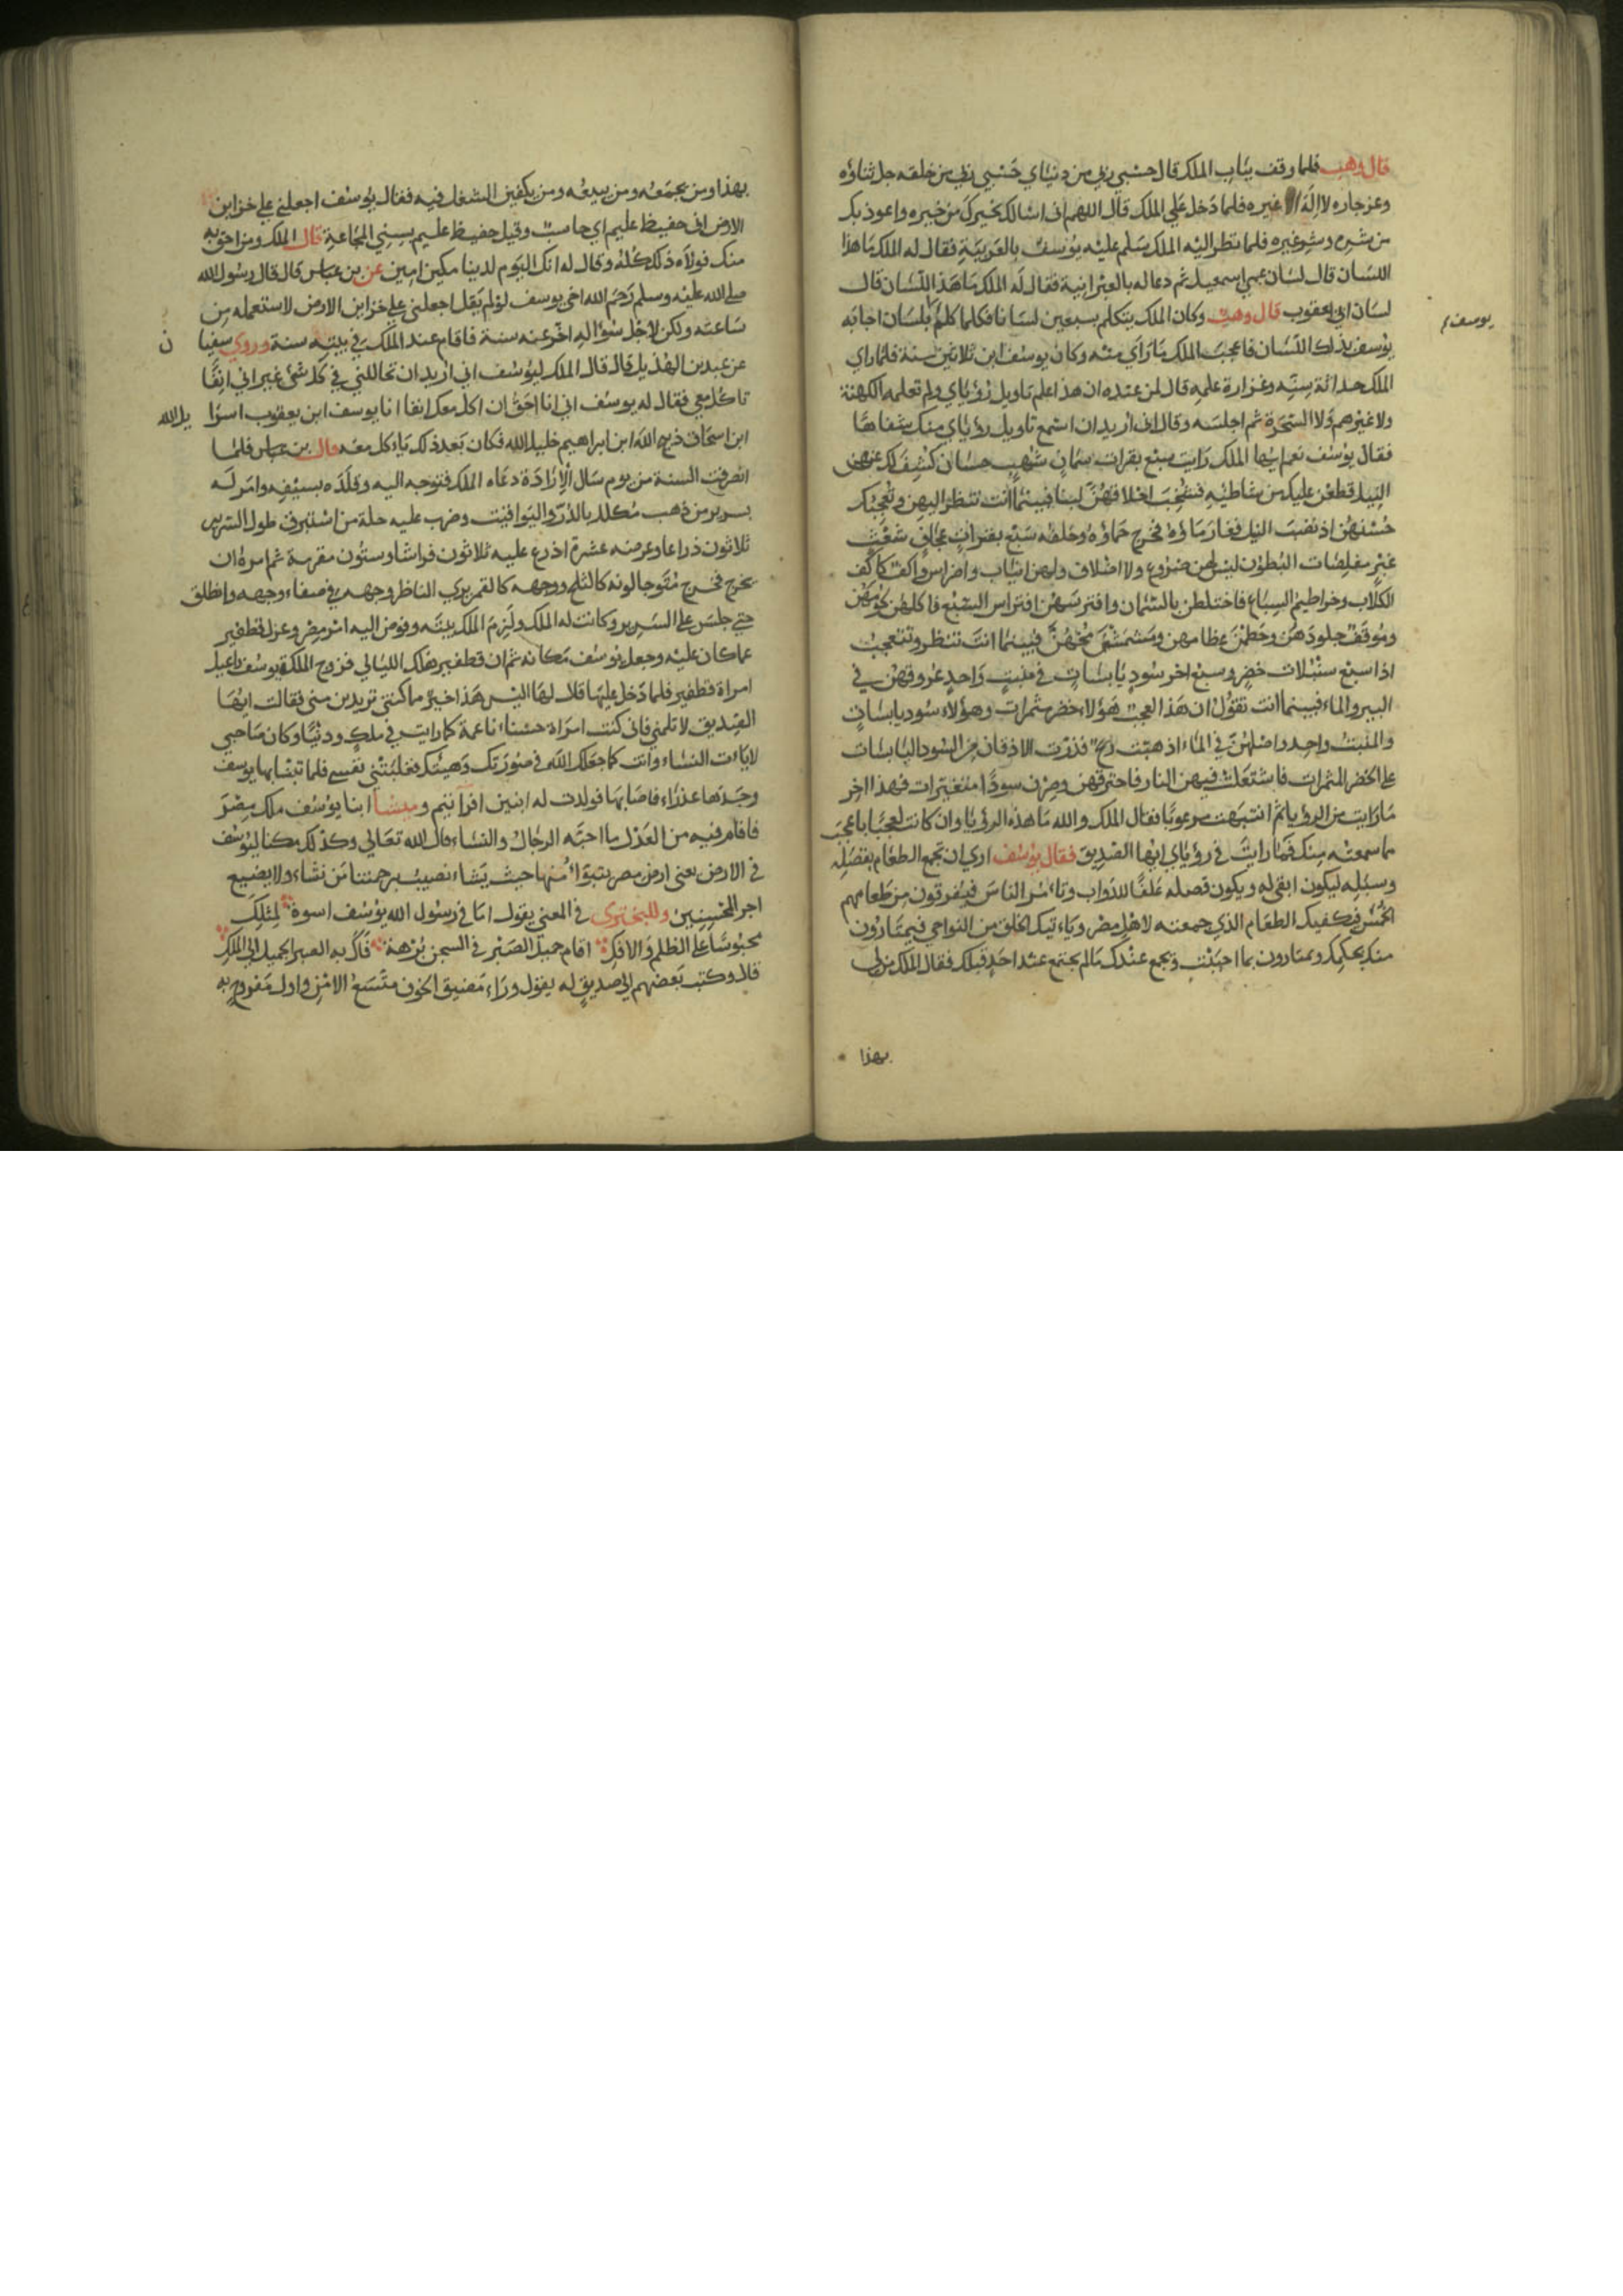 قال وهب فلما وقف بباب الملك قال حسبي ربي من دنياي حسبي ربي من خلقه جل ثناؤه
وعز جاره لا اله غيره فلما دخل علي الملك قال اللهم اني اسالك بخيرك من خيره واعوذ بك
من شره وشر غيره فلما نظر اليه الملك سلم عليه يوسف بالعربية فقال له الملك ما هذا
اللسان قال لسان عمي اسمعيل ثم دعا له بالعبرانية فقال له الملك ما هذا اللسان قال
لسان ابي يعقوب قال وهب وكان الملك يتكلم بسبعين لسانا فكلما كلم بلسان اجابه
يوسف م
يوسف بذلك اللسان فاعجب الملك ما راي منه وكان يوسف ابن ثلاثين سنة فلما راي
الملك حداثة سنه وغزارة علمه قال لمن عنده ان هذا اعلم تاويل رؤياي ولم تعلمه الكهنة
ولا غيرهم ولا السحرة ثم اجلسه وقال اني اريد ان اسمع تاويل رؤياي منك شفاها
فقال يوسف نعم ايها الملك رايت سبع بقرات سمان شهب حسان كشف لك عنهن
النيل فطلعن عليك من شاطئيه فشخب اخلافهن لبنا فبينما انت تنظر اليهن وتعجبك
حسنهن اذ نضب النيل فغار ماؤه فخرج من حماؤه وخلفه سبع بقرات عجاف شعث
غبر مقلصات البطون ليس لهن ضروع ولا اخلاف ولهن انياب واضراس واكف كاكف
الكلاب وخراطيم السباع فاختلطن بالسمان وافترسهن افتراس السبع فاكلن لحومهن
ومزقن جلودهن وحطمن عظامهن ومشمشن مخهن فبينما انت تنظر وتتعجب
اذا سبع سنبلات خضر وسبع اخر سود يابسات في منبت واحد عروقهن في
البير والماء فبينما انت تقول ان هذا العجب هؤلاء خضر مثمرات وهؤلاء سود يابسات
والمنبت واحد واصلهن في الماء اذ هبت ريح فذرت الاذقان من السود اليابسات
علي الخضر المثمرات فاشتعلت فيهن النار فاحترقهن وصرن سودا متغيرات فهذا اخر
ما رايت من الرؤيا ثم انتبهت مرعوبا فقال الملك والله ما هذه الرؤيا وان كانت لعجبا باعجب
مما سمعته منك فما رايت في رؤياي ايها الصديق فقال يوسف اري ان تجمع الطعام بقصله
وسبله ليكون ابقي له ويكون قصله علفا للدواب وتامر الناس فيفرقون من طعامهم
الخمس فيكفيك الطعام الذي جمعته لاهل مصر وياتيك الخلق من النواحي فيمتارون
منك بحكمك ويمتارون بما احببت ويجمع عندك مالم يجتمع عند احد قبلك فقال الملك من لي
بهذا
بهذا ومن يجمعه ومن يبيعه ومن يكفين الشغل فيه فقال يوسف اجعلني علي خزاين
الارض اني حفيظ عليم اي حاسب وقيل حفيظ عليم بسني المجاعة قال الملك ومن احق به
منك فولاه ذلك كله وقال له انك اليوم لدينا مكين امين عن بن عباس قال قال رسول الله
صلي الله عليه وسلم رحم الله اخي يوسف لو لم يقل اجعلني علي خزاين الارض لاستعمله من
ساعته ولكن لاجل سؤاله اخر عنه سنة فاقام عند الملك في بيته سنة وروي سفيا
ن
عن عبد بن الهذيل قال قال الملك ليوسف اني اريد ان تخاللني في كل شئ غير اني انفا
تاكل معي فقال له يوسف اني انا احق ان اكل معك انفا انا يوسف ابن يعقوب اسرا
يل الله
ابن اسحاق ذبيح الله ابن ابراهيم خليل الله فكان بعد ذلك ياكل معه قال بن عباس فلما
انصرفت السنة من يوم سال الارادة دعاه الملك فتوجه اليه وقلده بسيفه وامر له
بسرير من ذهب مكلل بالدر واليواقيت وضرب عليه حلة من استبرق طول السرير
ثلاثون ذراعا وعرضه عشرة اذرع عليه ثلاثون فراشا وستون مقرمة ثم امره ان
يخرج فخرج متوجا لونه كالثلج ووجهه كالقمر يري الناظر وجهه في صفاء وجهه وانطلق
حتي جلس علي السرير وكانت له الملك ولزم الملك بيته وفوض اليه امر مصر وعزل قطفير
عما كان عليه وجعل يوسف مكانه ثم ان قطفير هلك الليالي فزوج الملك يوسف راعيل
امراة قطفير فلما دخل عليها قال لها اليس هذا خير مما كنتي تريدين مني فقالت ايها
الصديق لا تلمني فاني كنت امراة حسناء ناعمة كما رايت في ملك ودنيا وكان صاحبي
لا ياءت النساء وانت كما جعلك الله في صورتك وهيئتك فغلبتني نفسي فلما تبنا بها يوسف
وجدها عذراء فاصابها فولدت له ابنين افراثيم وميشا ابنا يوسف ملك مصر
فاقام فيه من العدل ما احبه الرجال والنساء قال الله تعالي وكذلك مكنا ليوسف
في الارض يعني ارض مصر يتبوا منها حيث يشاء نصيب برحمتنا من نشاء ولا يضيع
اجر المحسنين وللبختري في المعني يقول اما في رسول الله يوسف اسوة لمثلك
محبوسا علي الظلم والافك اقام جميل الصبر في السجن برهة فآل به الصبر الجميل الي الملك
قال وكتب بعضهم الي صديق له يقول وراء مضيق الخوف متسع الامن واول مفروح به